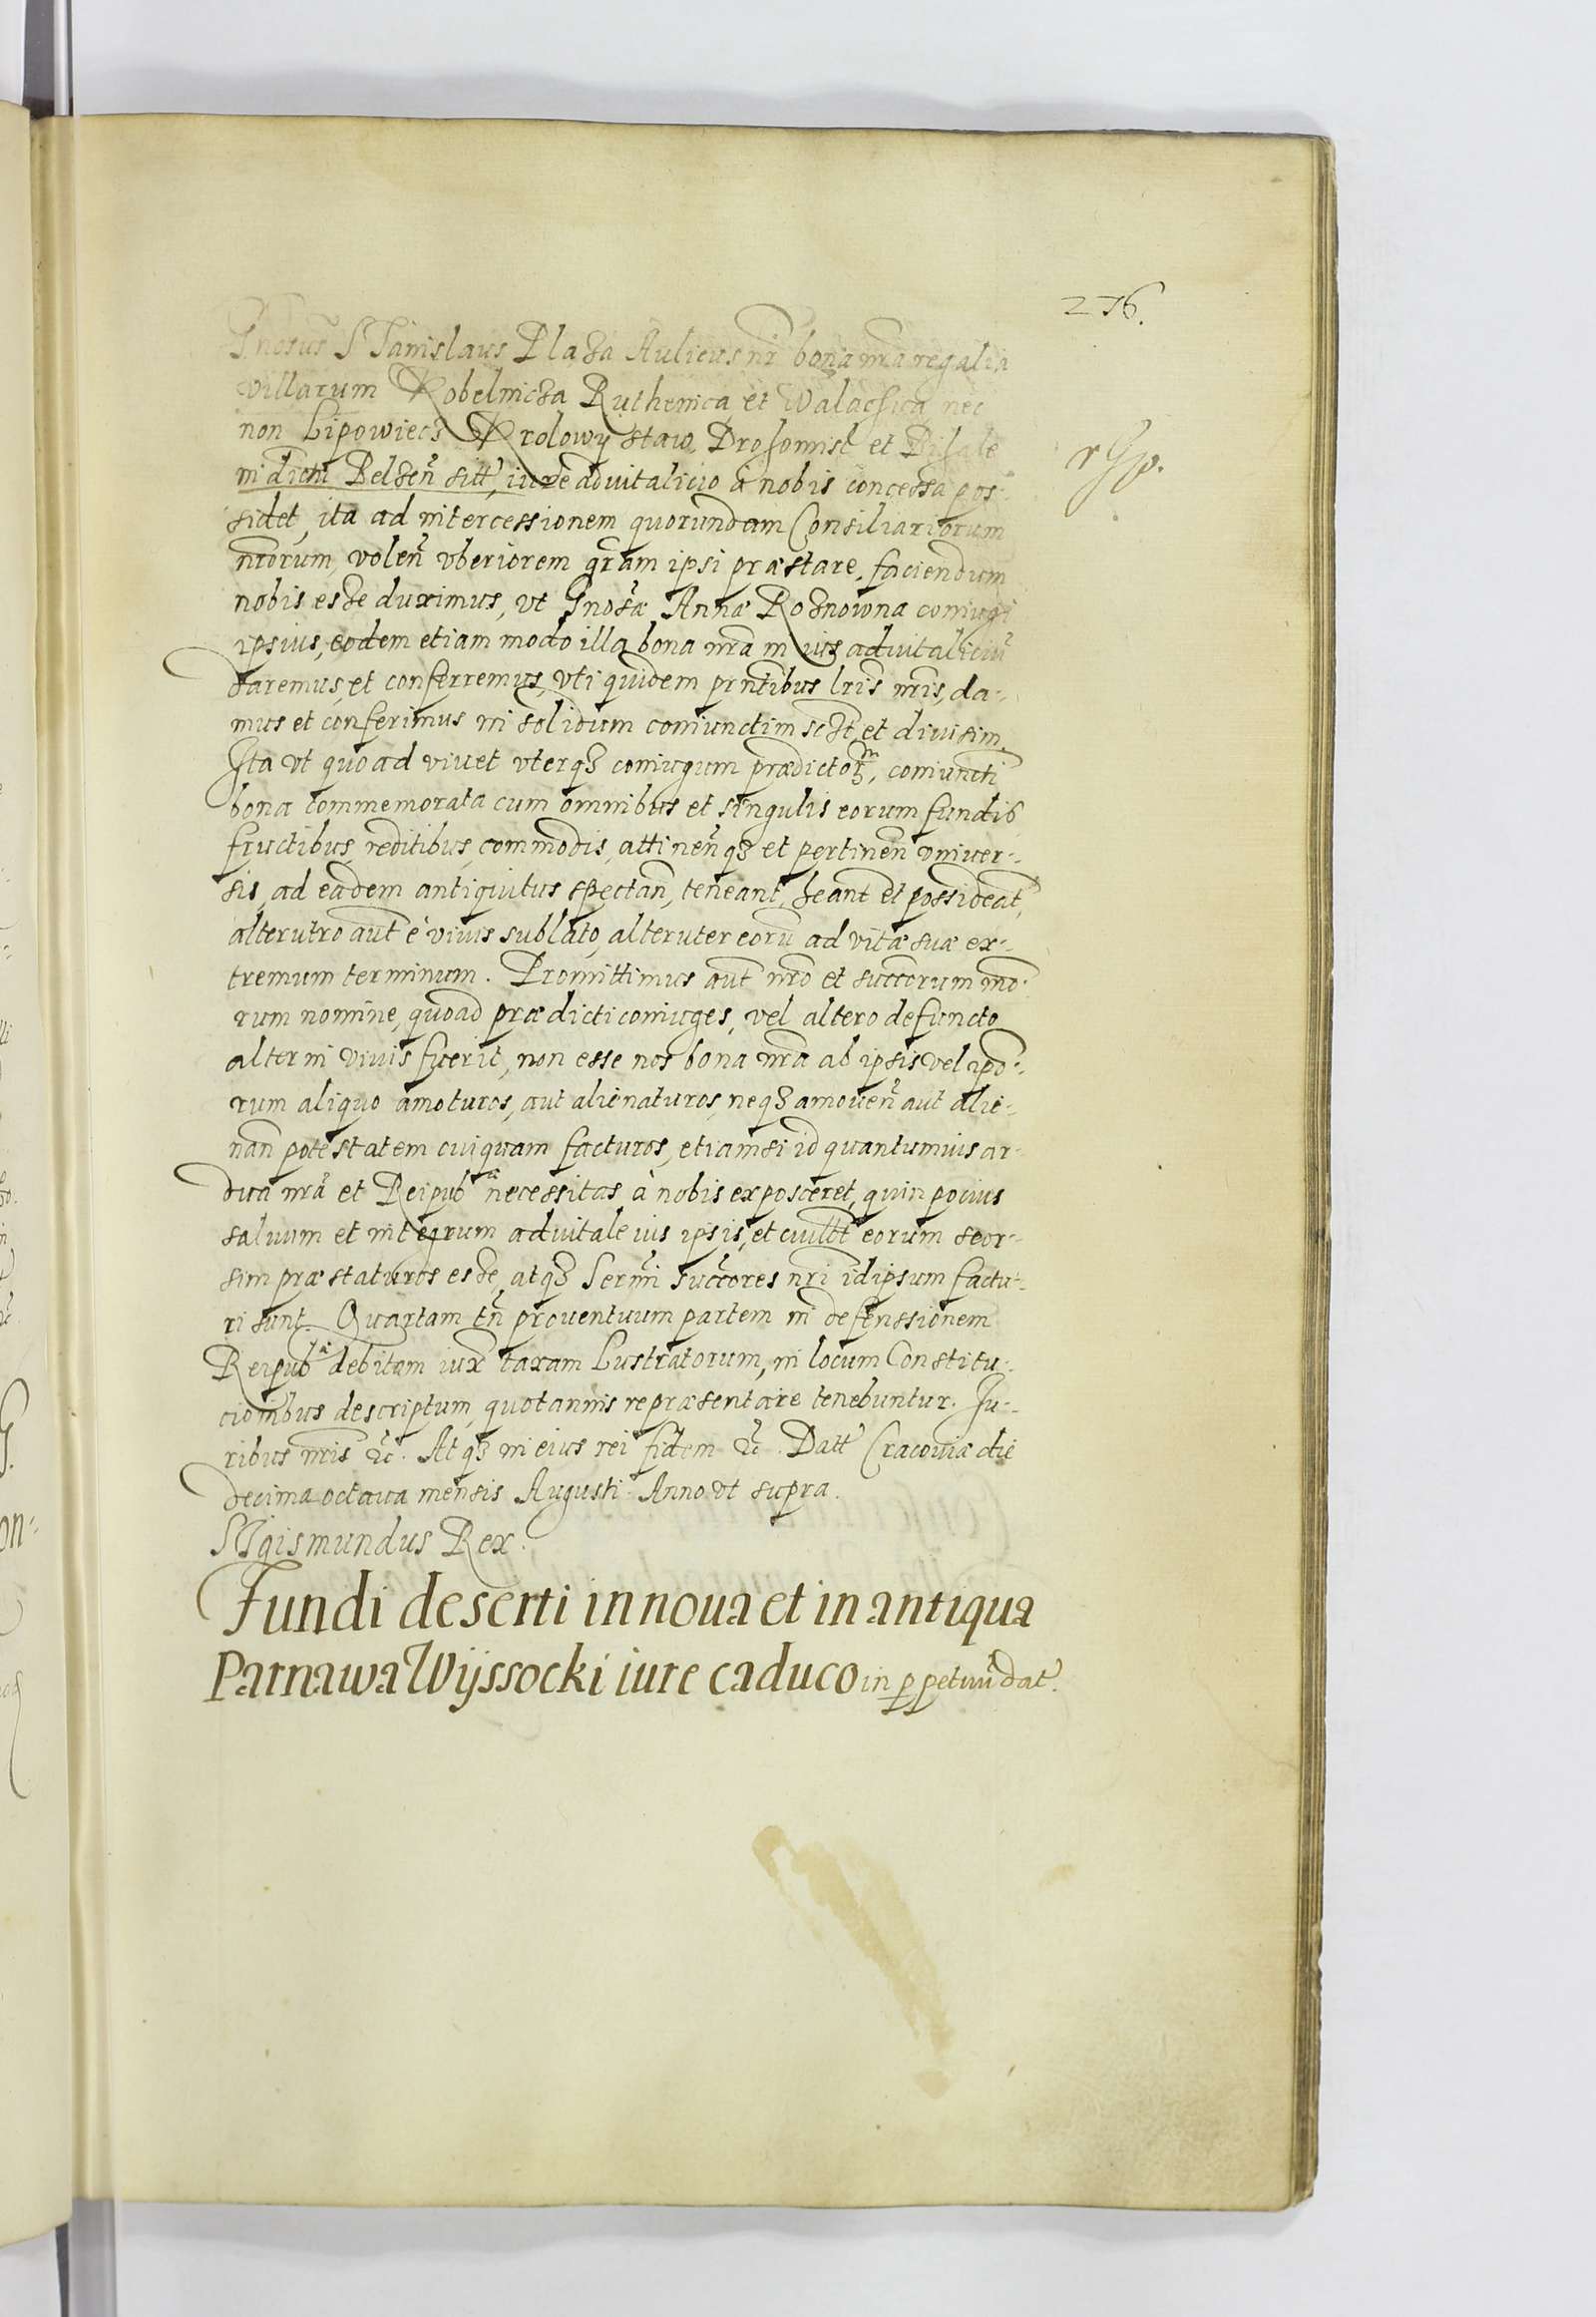 276.
Gnosus Stanislaus Plaza Aulicus nr̃ bona nr̃a regalia
villarum Kobelnicza Ruthenica et Walachica nec
non Lipowiecz Krolowy staw, Drohomisl et
in dictu Belzeñ sitt̃, iure advitalicio à nobis concessa pos-
sidet, ita ad intercessionem quorundam Consiliariorum
nr̃orum, voleñ vberiorem gr̃am ipsi præstare, faciendum
nobis esse duximus, vt Gnosæ Annæ Rosnowna coniugi
ipsius, eodem etiam modo illa bona nr̃a in ius advitaliciũ
daremus, et conferremus, vti quidem prñtibus lr̃is nr̃is, da-
mus et conferimus in solidum coniunctim sc̃zt, et diuisim.
Ita vt quoad viuet vterqȝ coniugum prædictoꝝ, coniuncti
bona commemorata cum omnibus et singulis eorum fundis
fructibus, reditibus, commodis, attineñqȝ et pertineñ vniver-
sis, ad eadem antiquitus spectañ, teneant, heant et possideãt,
alterutro aut̃ è viuis sublato, alteruter eorũ ad vitæ suæ ex-
tremum terminum. Promittimus aut̃ nr̃o et succorum nr̃o-
rum nomine, quoad prædicti coniuges, vel altero defuncto
alter in viuis fuerit, non esse nos bona nr̃a ab ipsis vel ipõ-
rum aliquo amoturos, aut alienaturos, neqȝ amoueñ aut alie-
nañ potestatem cuiquam facturos, etiamsi id quantumuis ar-
dua nr̃a et Reipub necessitas à nobis exposceret, quin pocius
saluum et integrum advitale ius ipsis, et cuilt̃ eorum seor-
sim præstaturos esse, atqȝ Sermi succores nr̃i idipsum factu-
ri sunt. Quartam tñ prouentuum partem in defenssionem
Reipub debitam iux̃ taxam Lustratorum, in locum Constitu-
cionibus descriptum, quotannis repræsentare tenebuntur. Iu-
ribus nr̃is &c. Atqȝ in eius rei fidem &c. Datt̃ Cracouiæ die
decima octaua mensis Augusti Anno vt supra.
SIgismundus Rex.
Fundi deserti in noua et in antiqua
Parnawa Wÿssocki iure caduco in ꝑpetuũ dat̃.